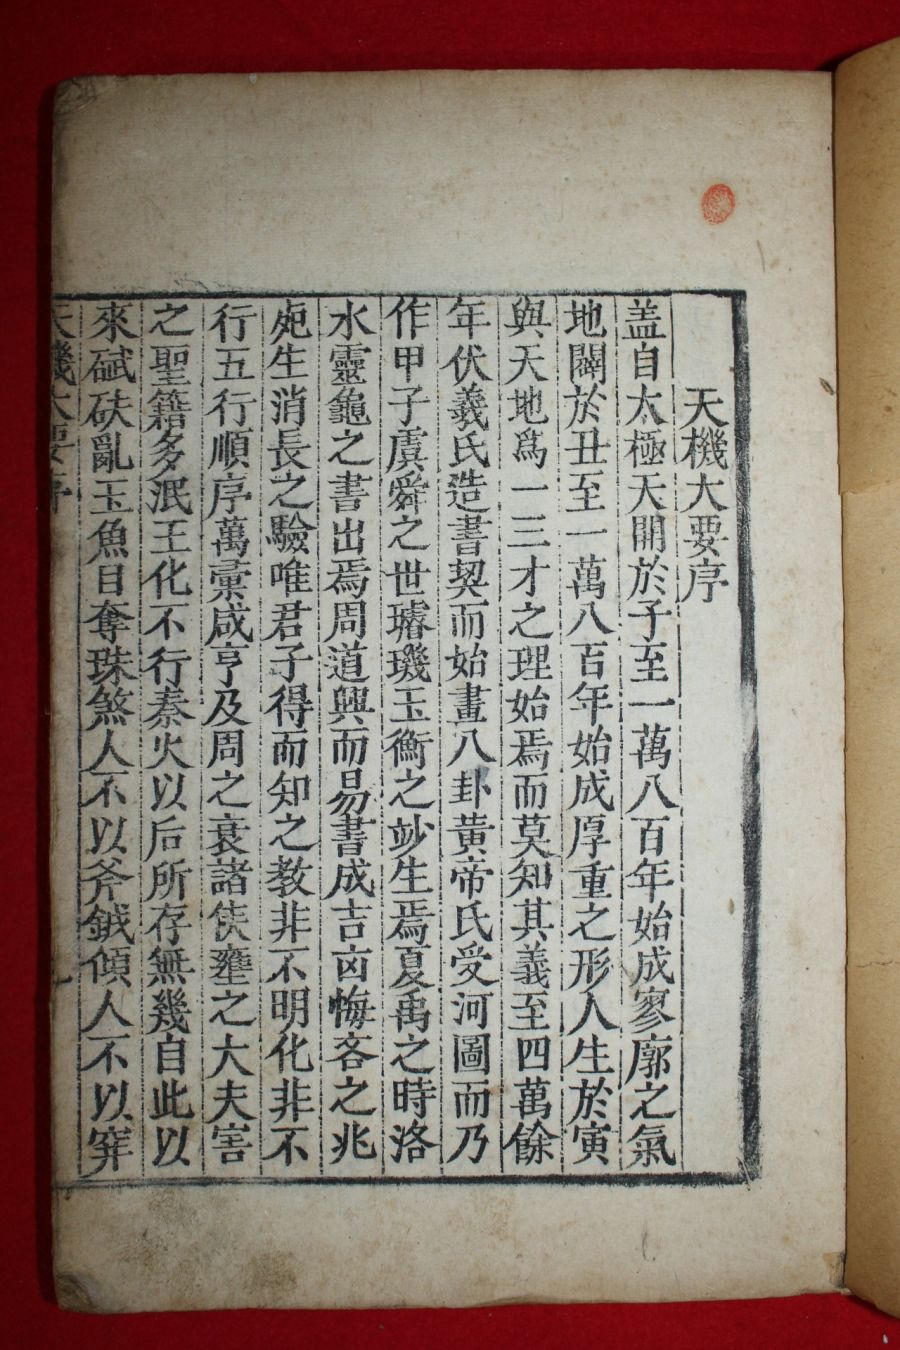 天機大要序
盖自太極天開於子至一萬八百年始成寥廓之氣
地闢於丑至一萬八百年始成厚重之形人生於寅
與天地爲一三才之理始焉而莫知其義至四萬餘
年伏羲氏造書契而始畫八卦黄帝氏受河圖而乃
作甲子虞舜之世璿璣玉衡之妙生焉夏禹之時洛
水靈龜之書出焉周道興而易書成吉凶悔吝之兆
死生消長之驗唯君子得而知之教非不明化非不
行五行順序萬彙咸亨及周之衰諸侯壅之大夫害
之聖籍多泯王化不行秦火以后所存無幾自此以
來碔砆亂玉魚目奪珠煞人不以斧鉞傾人不以穽
天機大要序